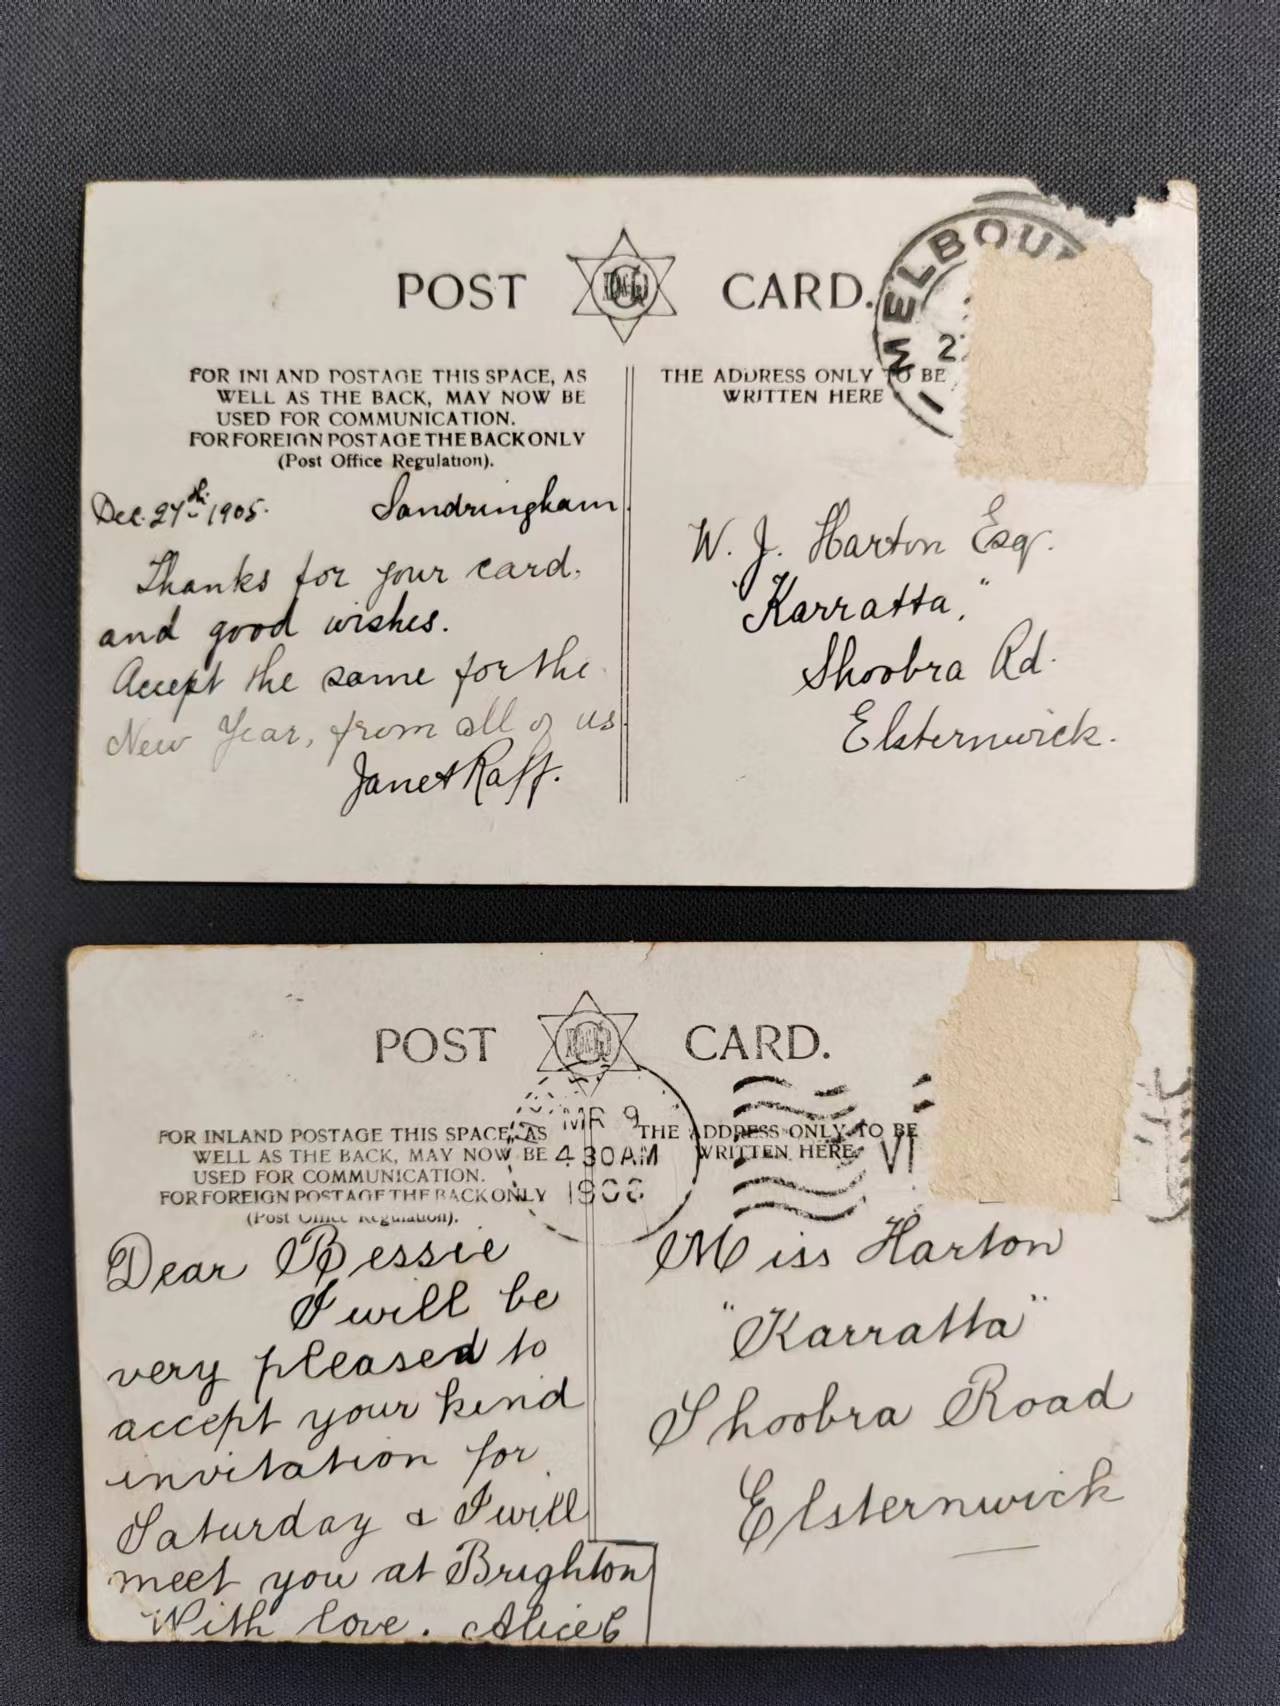 POST CARD.
MELBOU
2
FOR INLAND POSTAGE THIS SPACE, AS
WELL AS THE BACK, MAY NOW BE
USED FOR COMMUNICATION.
FOR FOREIGN POSTAGE THE BACK ONLY
(Post Office Regulation).
THE ADDRESS ONLY TO BE
WRITTEN HERE
Dec. 27th 1905. Sandringham
Thanks for your card,
and good wishes.
Accept the same for the
New Year, from all of us
Janet Raff.
W. J. Harton Esq.
"Karratta,"
Shoobra Rd.
Elsternwick.
POST CARD.
MR 9
4 30AM
1906
VI
FOR INLAND POSTAGE THIS SPACE, AS
WELL AS THE BACK, MAY NOW BE
USED FOR COMMUNICATION.
FOR FOREIGN POSTAGE THE BACK ONLY
(Post Office Regulation).
THE ADDRESS ONLY TO BE
WRITTEN HERE
Dear Bessie
I will be
very pleased to
accept your kind
invitation for
Saturday & I will
meet you at Brighton
With love. Alice C
Miss Harton
"Karratta"
Shoobra Road
Elsternwick